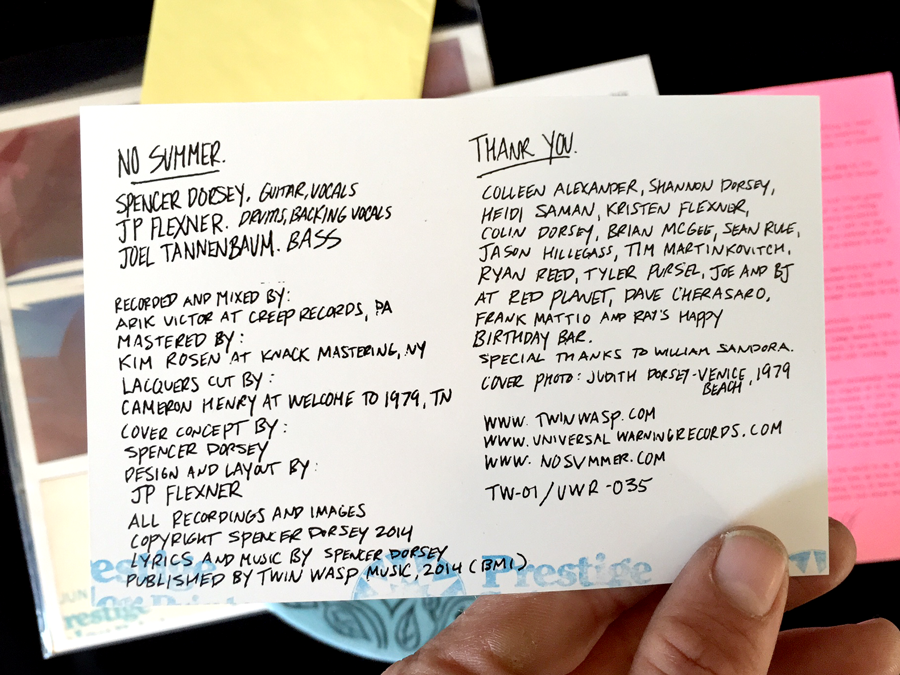 NO SUMMER.
SPENCER DORSEY. GUITAR, VOCALS
JP FLEXNER. DRUMS, BACKING VOCALS
JOEL TANNENBAUM. BASS
RECORDED AND MIXED BY:
ARIK VICTOR AT CREEP RECORDS, PA
MASTERED BY:
KIM ROSEN AT KNACK MASTERING, NY
LACQUERS CUT BY:
CAMERON HENRY AT WELCOME TO 1979, TN
COVER CONCEPT BY:
SPENCER DORSEY
DESIGN AND LAYOUT BY:
JP FLEXNER
ALL RECORDINGS AND IMAGES
COPYRIGHT SPENCER DORSEY 2014
LYRICS AND MUSIC BY SPENCER DORSEY
PUBLISHED BY TWIN WASP MUSIC, 2014 (BMI)
THANK YOU.
COLLEEN ALEXANDER, SHANNON DORSEY,
HEIDI SAMAN, KRISTEN FLEXNER,
COLIN DORSEY, BRIAN MCGEE, SEAN RULE,
JASON HILLEGASS, TIM MARTINKOVITCH,
RYAN REED, TYLER PURSEL, JOE AND BJ
AT RED PLANET, DAVE C'HERASARO,
FRANK MATTIO AND RAY'S HAPPY
BIRTHDAY BAR.
SPECIAL THANKS TO WILLIAM SANDORA.
COVER PHOTO: JUDITH DORSEY-VENICE
BEACH, 1979
WWW. TWINWASP.COM
WWW.UNIVERSALWARNINGRECORDS.COM
WWW. NOSUMMER.COM
TW-01/UWR-035
Prestige